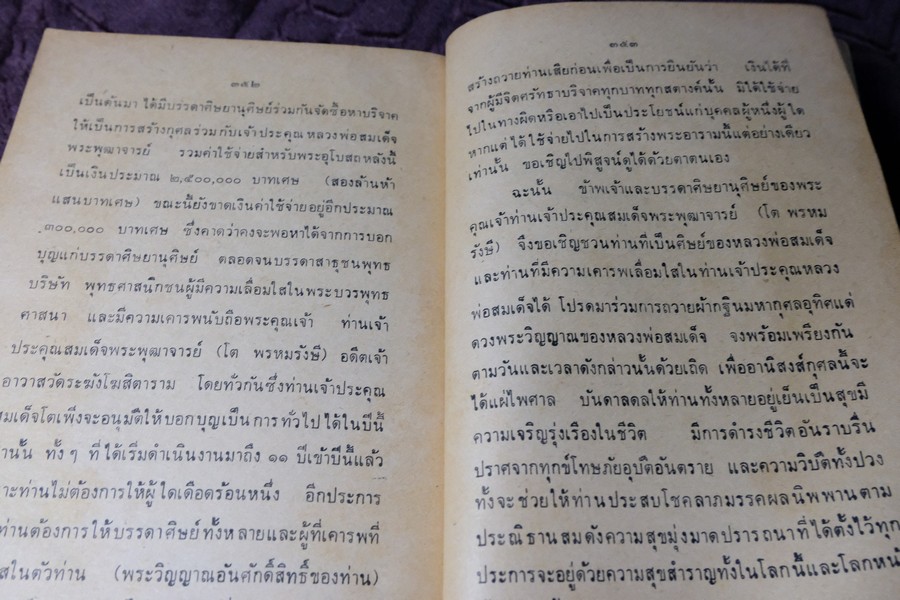 ๓๕๒
เป็นต้นมา ได้มีบรรดาศิษยานุศิษย์ร่วมกันจัดซื้อหาบริจาค
ให้เป็นการสร้างกุศลร่วมกับเจ้าประคุณ หลวงพ่อสมเด็จ
พระพุฒาจารย์ รวมค่าใช้จ่ายสำหรับพระอุโบสถหลังนี้
เป็นเงินประมาณ ๒,๕๐๐,๐๐๐ บาทเศษ (สองล้านห้า
แสนบาทเศษ) ขณะนี้ยังขาดเงินค่าใช้จ่ายอยู่อีกประมาณ
๓๐๐,๐๐๐ บาทเศษ ซึ่งคาดว่าคงจะพอหาได้จากการบอก
บุญแก่บรรดาศิษยานุศิษย์ ตลอดจนบรรดาสาธุชนพุทธ
บริษัท พุทธศาสนิกชนผู้มีความเลื่อมใสในพระบวรพุทธ
ศาสนา และมีความเคารพนับถือพระคุณเจ้า ท่านเจ้า
ประคุณสมเด็จพระพุฒาจารย์ (โต พรหมรังษี) อดีตเจ้า
อาวาสวัดระฆังโฆสิตาราม โดยทั่วกันซึ่งท่านเจ้าประคุณ
สมเด็จโตเพิ่งจะอนุมัติให้บอกบุญเป็นการทั่วไปได้ในปีนี้
านั้น ทั้งๆ ที่ได้เริ่มดำเนินงานมาถึง ๑๑ ปีเข้าปีนี้แล้ว
าะท่านไม่ต้องการให้ผู้ใดเดือดร้อนหนึ่ง อีกประการ
ท่านต้องการให้บรรดาศิษย์ทั้งหลายและผู้ที่เคารพที่
สในตัวท่าน (พระวิญญาณอันศักดิ์สิทธิ์ของท่าน)
๓๕๓
สร้างถวายท่านเสียก่อนเพื่อเป็นการยืนยันว่า เงินได้ที่
จากผู้มีจิตศรัทธาบริจาคทุกบาททุกสตางค์นั้น มิได้ใช้จ่าย
ไปในทางผิดหรือเอาไปเป็นประโยชน์แก่บุคคลผู้หนึ่งผู้ใด
หากแต่ได้ใช้จ่ายไปในการสร้างพระอารามนี้แต่อย่างเดียว
เท่านั้น ขอเชิญไปพิสูจน์ดูได้ด้วยตาตนเอง
ฉะนั้น ข้าพเจ้าและบรรดาศิษยานุศิษย์ของพระ
คุณเจ้าท่านเจ้าประคุณสมเด็จพระพุฒาจารย์ (โต พรหม
รังษี) จึงขอเชิญชวนท่านที่เป็นศิษย์ของหลวงพ่อสมเด็จ
และท่านที่มีความเคารพเลื่อมใสในท่านเจ้าประคุณหลวง
พ่อสมเด็จได้ โปรดมาร่วมการถวายผ้ากฐินมหากุศลอุทิศแด่
ดวงพระวิญญาณของหลวงพ่อสมเด็จ จงพร้อมเพรียงกัน
ตามวันและเวลาดังกล่าวนั้นด้วยเถิด เพื่ออานิสงส์กุศลนี้จะ
ได้แผ่ไพศาล บันดาลดลให้ท่านทั้งหลายอยู่เย็นเป็นสุขมี
ความเจริญรุ่งเรืองในชีวิต มีการดำรงชีวิตอันราบรื่น
ปราศจากทุกข์โทษภัยอุบัติอันตราย และความวิบัติทั้งปวง
ทั้งจะช่วยให้ท่านประสบโชคลาภมรรคผลนิพพานตาม
ประณิธานสมดังความสุขมุ่งมาดปรารถนาที่ได้ตั้งไว้ทุก
ประการจะอยู่ด้วยความสุขสำราญทั้งในโลกนี้และโลกหน้